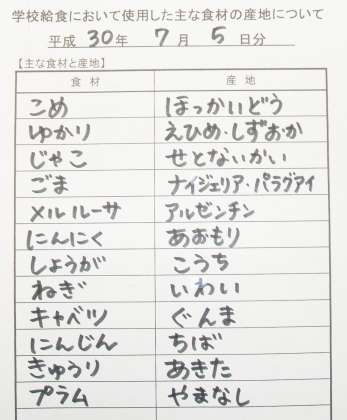 学校給食において使用した主な食材の産地について
平成 30 年 7 月 5 日分
【主な食材と産地】
食材 産地
こめ ほっかいどう
ゆかり えひめ・しずおか
じゃこ せとないかい
ごま ナイジェリア・パラグアイ
メルルーサ アルゼンチン
にんにく あおもり
しょうが こうち
ねぎ いわい
キャベツ ぐんま
にんじん ちば
きゅうり あきた
プラム やまなし